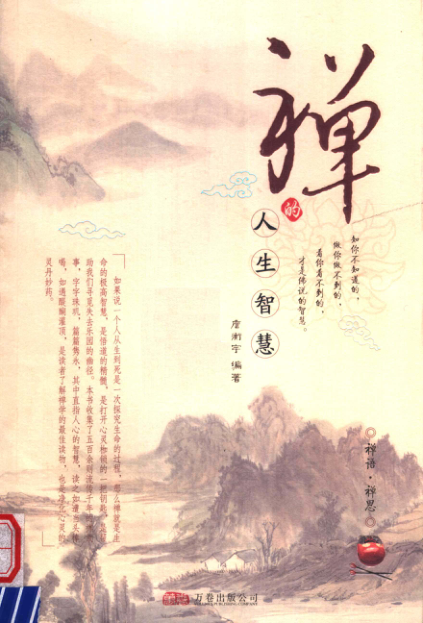 禅
的
人生智慧
知你不知道的，
做你做不到的，
看你看不到的，
才是佛说的智慧。
唐衡宇 编著
如果说一个人从生到死是一次探究生命的过程，那么禅就是生
命的极高智慧，是悟道的精髓，是打开心灵枷锁的一把钥匙，是帮
助我们寻觅失去乐园的幽径。本书收集了五百余则流传千年的禅故
事，字字珠玑，篇篇隽永，其中直指人心的智慧，读之如遭当头棒
喝，如遇醍醐灌顶，是读者了解禅学的最佳读物，也是净化心灵的
灵丹妙药。
禅语·禅思
万卷出版公司